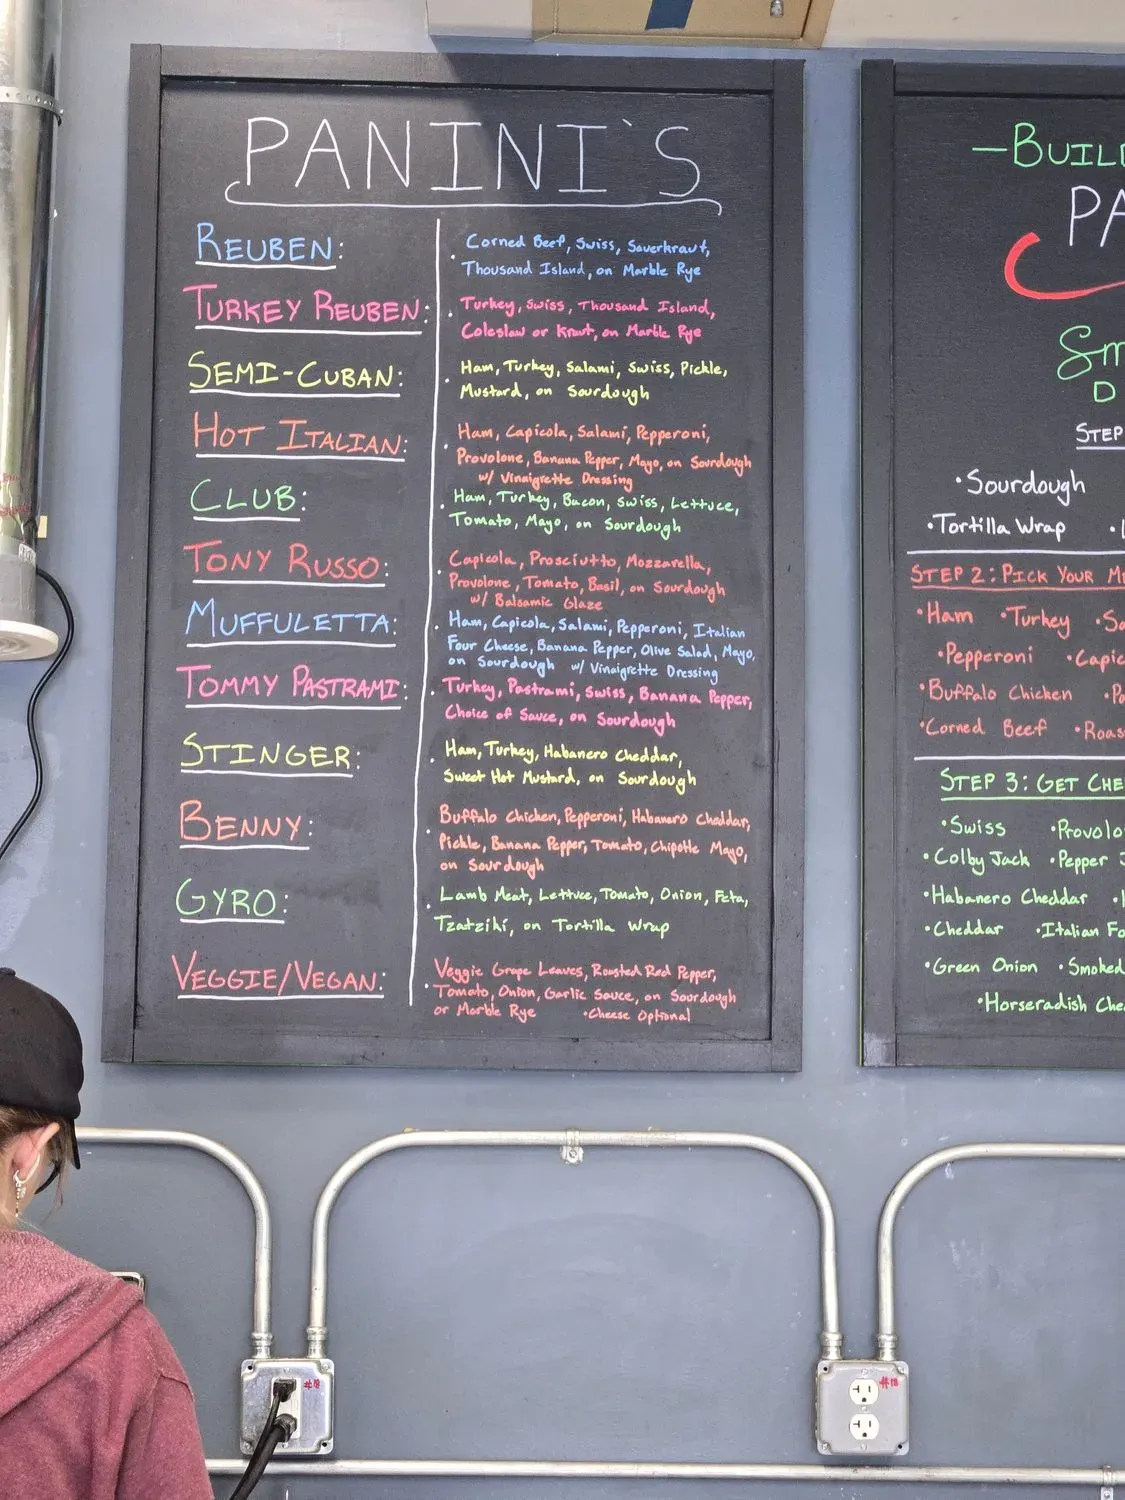 PANINI'S
REUBEN:
· Corned Beef, Swiss, Sauerkraut,
Thousand Island, on Marble Rye
TURKEY REUBEN:
· Turkey, Swiss, Thousand Island,
Coleslaw or Kraut, on Marble Rye
SEMI-CUBAN:
· Ham, Turkey, Salami, Swiss, Pickle,
Mustard, on Sourdough
HOT ITALIAN:
· Ham, Capicola, Salami, Pepperoni,
Provolone, Banana Pepper, Mayo, on Sourdough
w/ Vinaigrette Dressing
CLUB:
· Ham, Turkey, Bacon, Swiss, Lettuce,
Tomato, Mayo, on Sourdough
TONY RUSSO:
· Capicola, Prosciutto, Mozzarella,
Provolone, Tomato, Basil, on Sourdough
w/ Balsamic Glaze
MUFFULETTA:
· Ham, Capicola, Salami, Pepperoni, Italian
Four Cheese, Banana Pepper, Olive Salad, Mayo,
on Sourdough w/ Vinaigrette Dressing
TOMMY PASTRAMI:
· Turkey, Pastrami, Swiss, Banana Pepper,
Choice of Sauce, on Sourdough
STINGER:
· Ham, Turkey, Habanero Cheddar,
Sweet Hot Mustard, on Sourdough
BENNY:
· Buffalo Chicken, Pepperoni, Habanero Cheddar,
Pickle, Banana Pepper, Tomato, Chipotle Mayo,
on Sourdough
GYRO:
· Lamb Meat, Lettuce, Tomato, Onion, Feta,
Tzatziki, on Tortilla Wrap
VEGGIE/VEGAN:
· Veggie Grape Leaves, Roasted Red Pepper,
Tomato, Onion, Garlic Sauce, on Sourdough
or Marble Rye · Cheese Optional
-BUILD
PA
Sm
D
STEP
· Sourdough
· Tortilla Wrap
STEP 2: PICK YOUR ME
· Ham · Turkey · Sa
· Pepperoni · Capic
· Buffalo Chicken
· Corned Beef · Roas
STEP 3: GET CHE
· Swiss · Provolo
· Colby Jack · Pepper J
· Habanero Cheddar
· Cheddar · Italian Fo
· Green Onion · Smoked
· Horseradish Che
#18